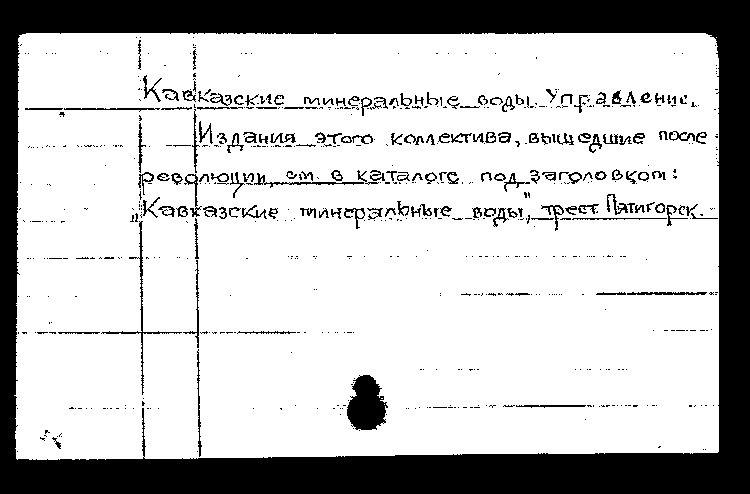 Кавказские минеральные воды. Управление.
Издания этого коллектива, вышедшие после
революции, см. в каталоге под заголовком:
„Кавказские минеральные воды", трест. Пятигорск.